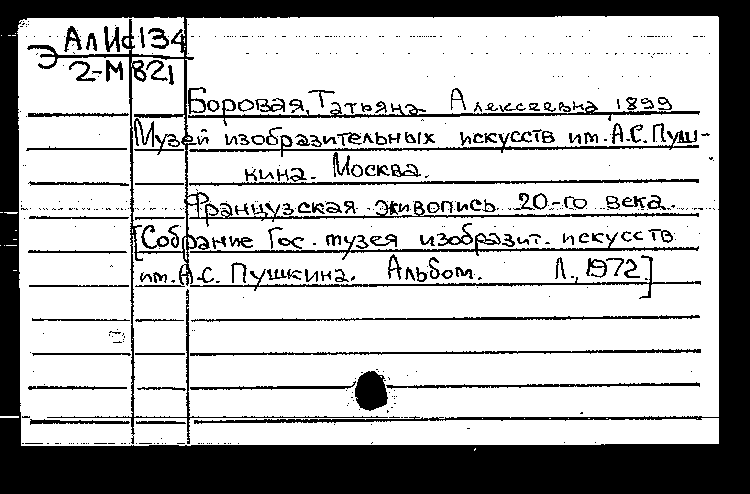 Э АлИс134
2-М821
Боровая, Татьяна Алексеевна 1899
Музей изобразительных искусств им. А.С. Пуш-
кина. Москва.
Французская живопись 20-го века.
[Собрание Гос. музея изобразит. искусств
им. А.С. Пушкина. Альбом. Л., 1972]